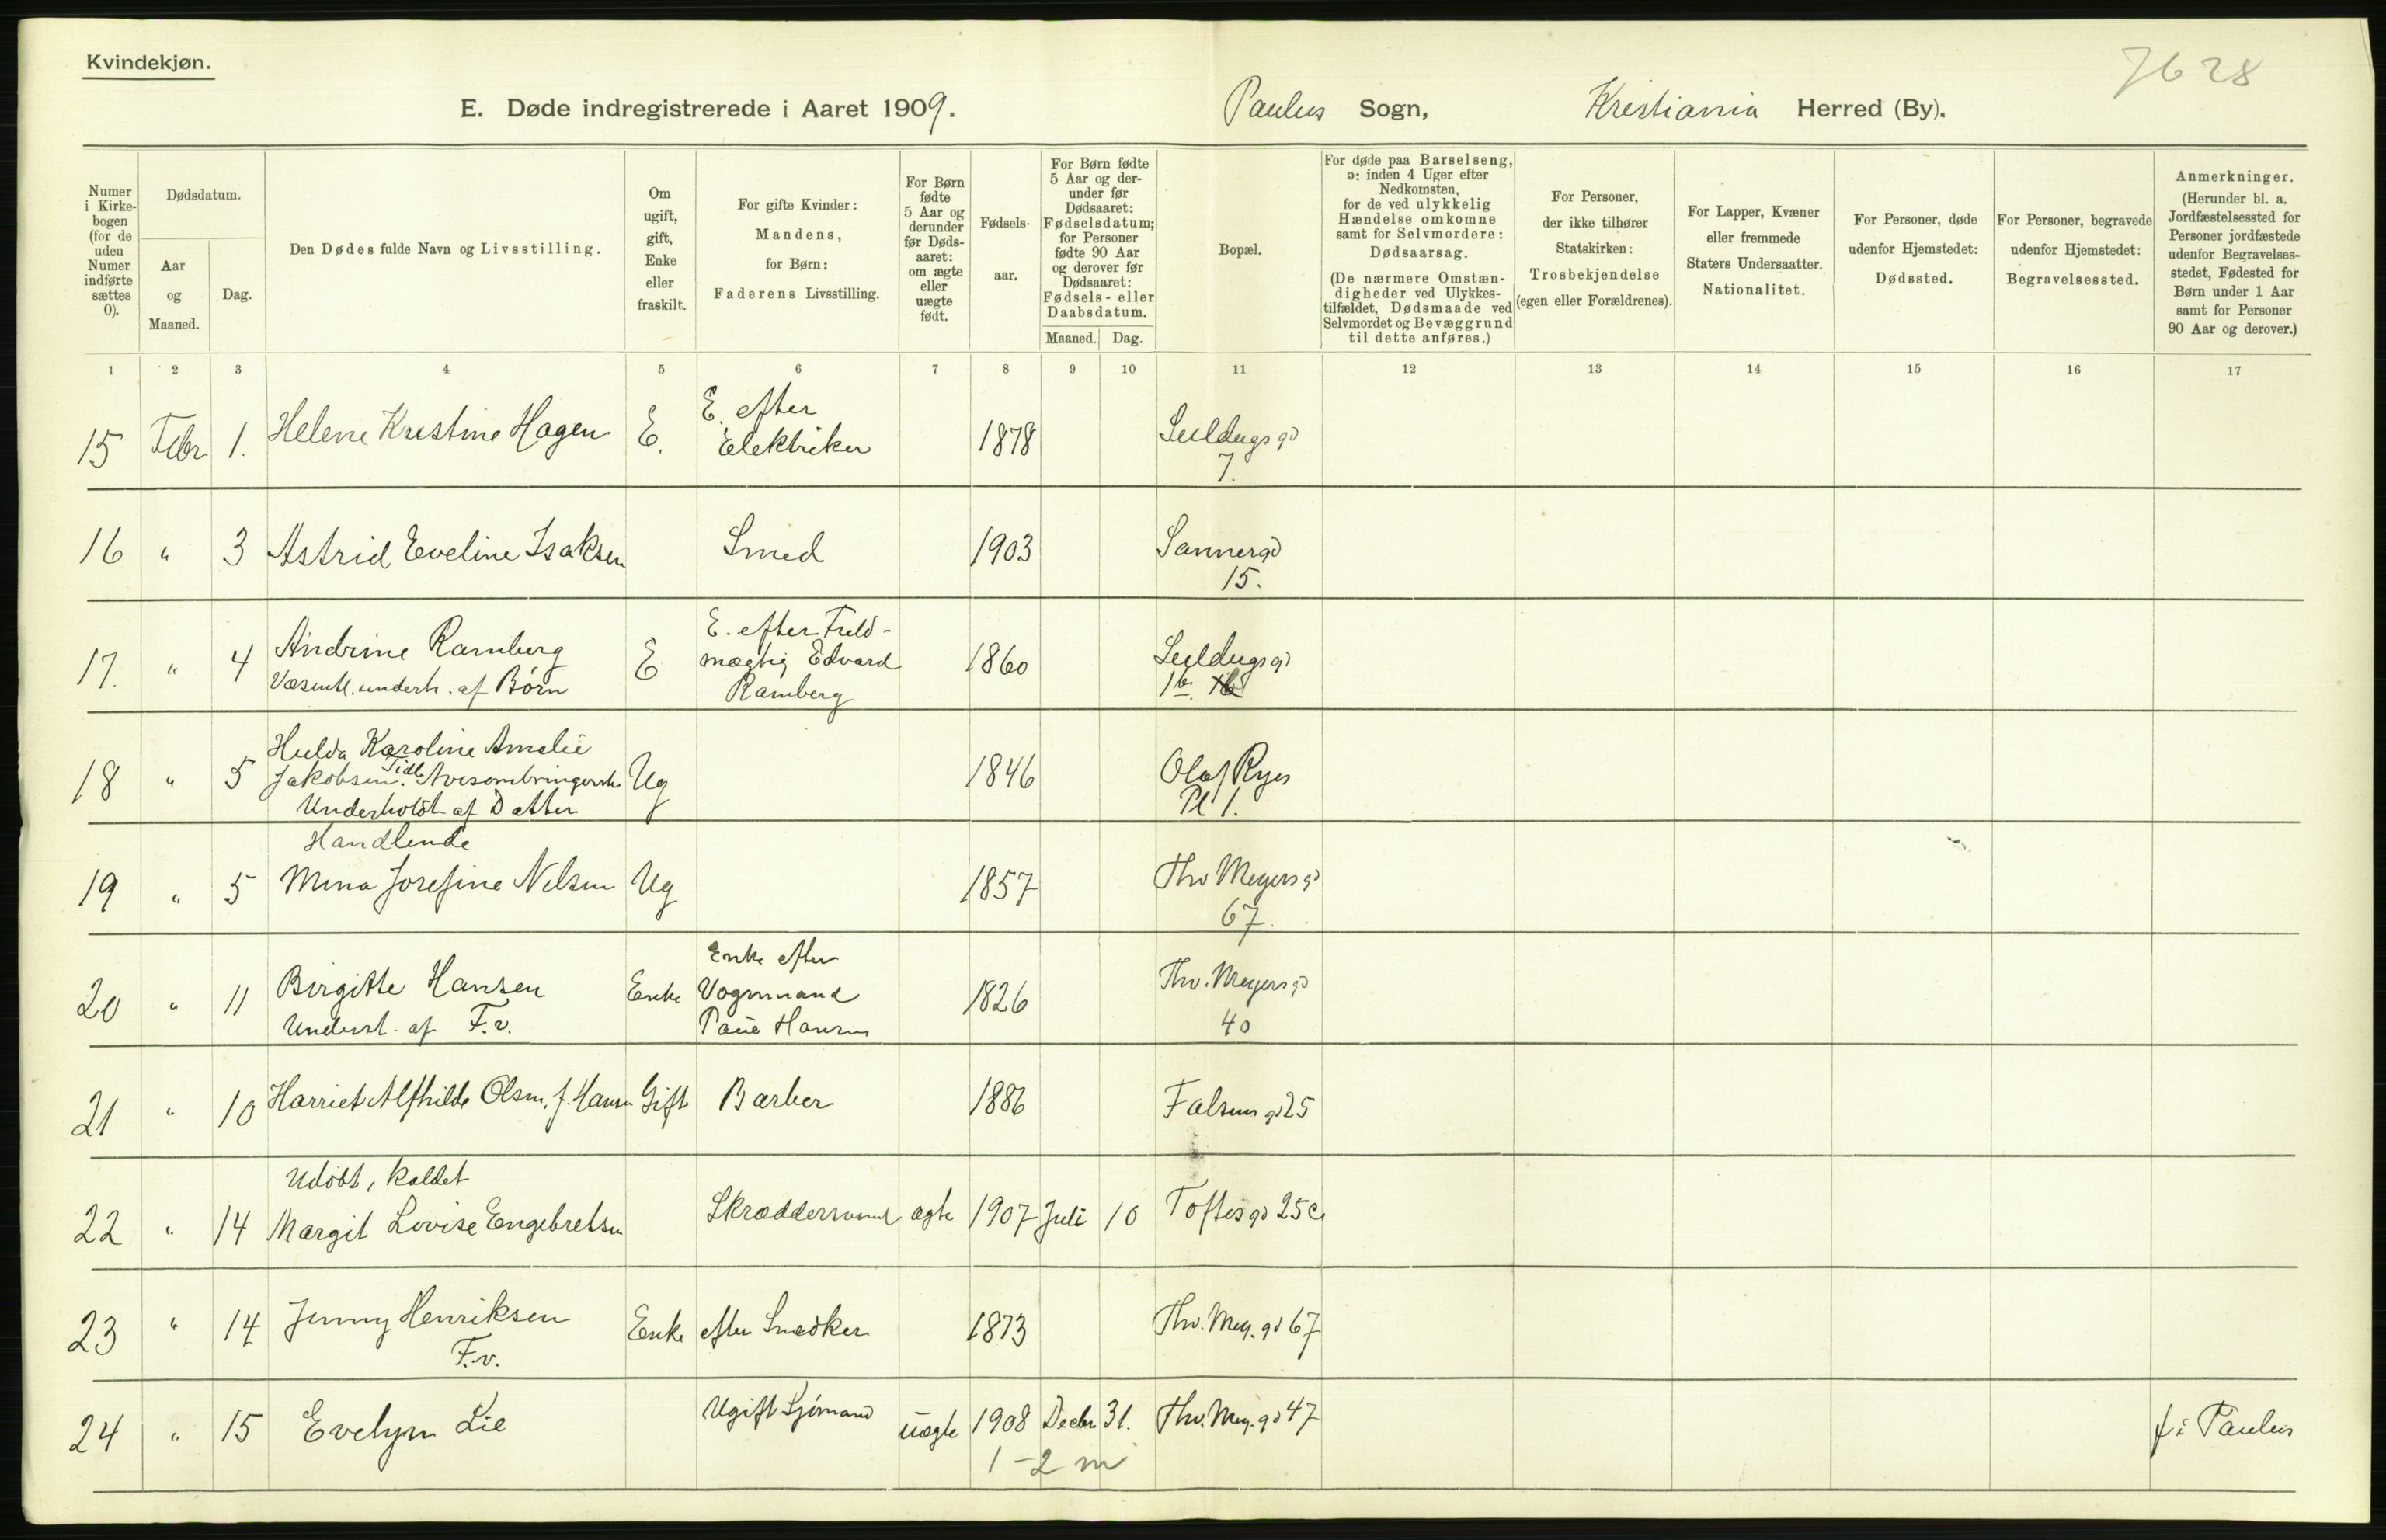 Kvindekjøn.
7628
E. Døde indregistrerede i Aaret 1909. Paulus Sogn, Kristiania Herred (By).
Numer i Kirke-bogen (for de uden Numer indførte sættes 0).
Dødsdatum.
Aar og Maaned.
Dag.
Den Dødes fulde Navn og Livsstilling.
Om ugift, gift, Enke eller fraskilt.
For gifte Kvinder: Mandens, for Børn: Faderens Livsstilling.
For Børn fødte 5 Aar og derunder før Døds-aaret: om ægte eller uægte født.
Fødsels-aar.
For Børn fødte 5 Aar og der-under før Dødsaaret: Fødselsdatum; for Personer fødte 90 Aar og derover før Dødsaaret: Fødsels- eller Daabsdatum.
Maaned. Dag.
Bopæl.
For døde paa Barselseng, ɔ: inden 4 Uger efter Nedkomsten, for de ved ulykkelig Hændelse omkomne samt for Selvmordere: Dødsaarsag.
(De nærmere Omstæn-digheder ved Ulykkes-tilfældet, Dødsmaade ved Selvmordet og Bevæggrund til dette anføres.)
For Personer, der ikke tilhører Statskirken: Trosbekjendelse (egen eller Forældrenes).
For Lapper, Kvæner eller fremmede Staters Undersaatter. Nationalitet.
For Personer, døde udenfor Hjemstedet: Dødssted.
For Personer, begravede udenfor Hjemstedet: Begravelsessted.
Anmerkninger. (Herunder bl. a. Jordfæstelsessted for Personer jordfæstede udenfor Begravelses-stedet, Fødested for Børn under 1 Aar samt for Personer 90 Aar og derover.)
1 2 3 4 5 6 7 8 9 10 11 12 13 14 15 16 17
15 Febr 1. Helene Kristine Hagen E. E. efter Elektriker 1878 Seildugsgd 7.
16 " 3 Astrid Eveline Isaksen Smed 1903 Sannergd 15.
17. " 4 Andrine Ramberg E E. efter Fuld-mægtig Edvard Ramberg 1860 Seildugsgd 1b.
Væsentl. underh. af Børn
18 " 5 Hulda Karoline Amalie Jakobsen. Tidl. Avisombringerske Ug 1846 Olaf Ryes Pl 1.
Underholdt af Datter
Handlende
19 " 5 Mina Josefine Nelsen Ug 1857 Thv Meyersgd 67.
20 " 11 Birgitte Hansen Enke Enke efter Vognmand Paul Hansen 1826 Thv. Meyersgd 40
Underst. af F.v.
21 " 10 Harriet Alfhilde Olsen, f. Hansen Gift Barber 1886 Falsens gd 25
Udøbt, kaldet
22 " 14 Margit Lovise Engebretsen Skræddersvend ægte 1907 Juli 10 Toftesgd 25c
23 " 14 Jenny Henriksen Enke efter Snedker 1873 Thv. Mey. gd 67
F.v.
24 " 15 Evelyn Lie Ugift Sjømand uægte 1908 Decbr 31. Thv. Mey. gd 47 f. i Paulus
1-2 m